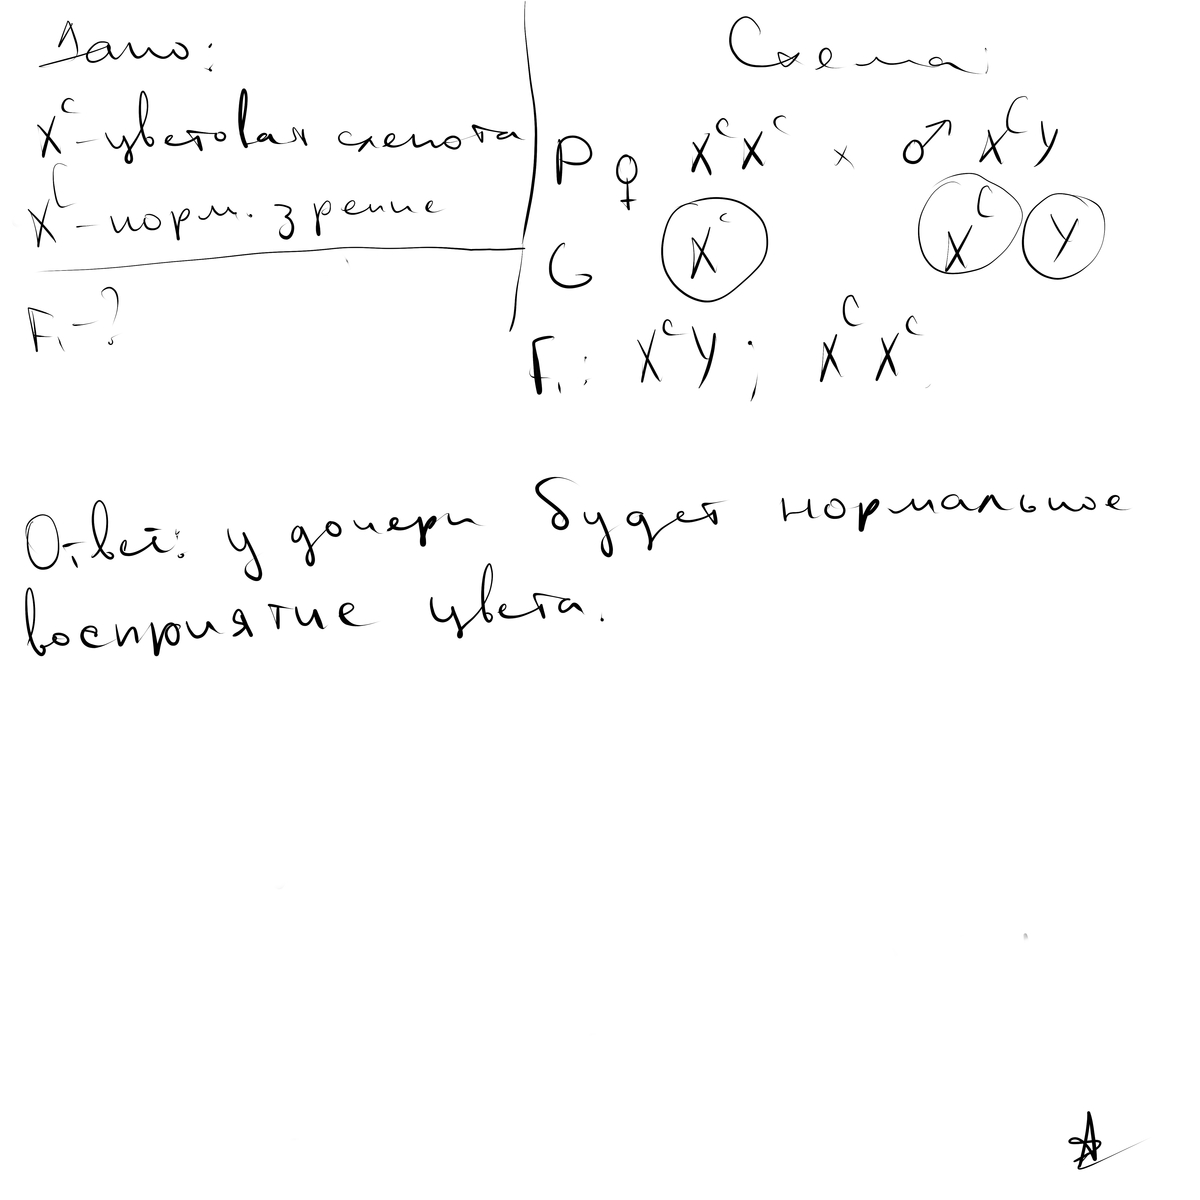 Дано:
X^c - цветовая слепота
X^C - норм. зрение
F₁ - ?
Схема:
P ♀ X^c X^c × ♂ X^C Y
G X^c X^C Y
F₁: X^c Y ; X^C X^c
Ответ: у дочери будет нормальное
восприятие цвета.